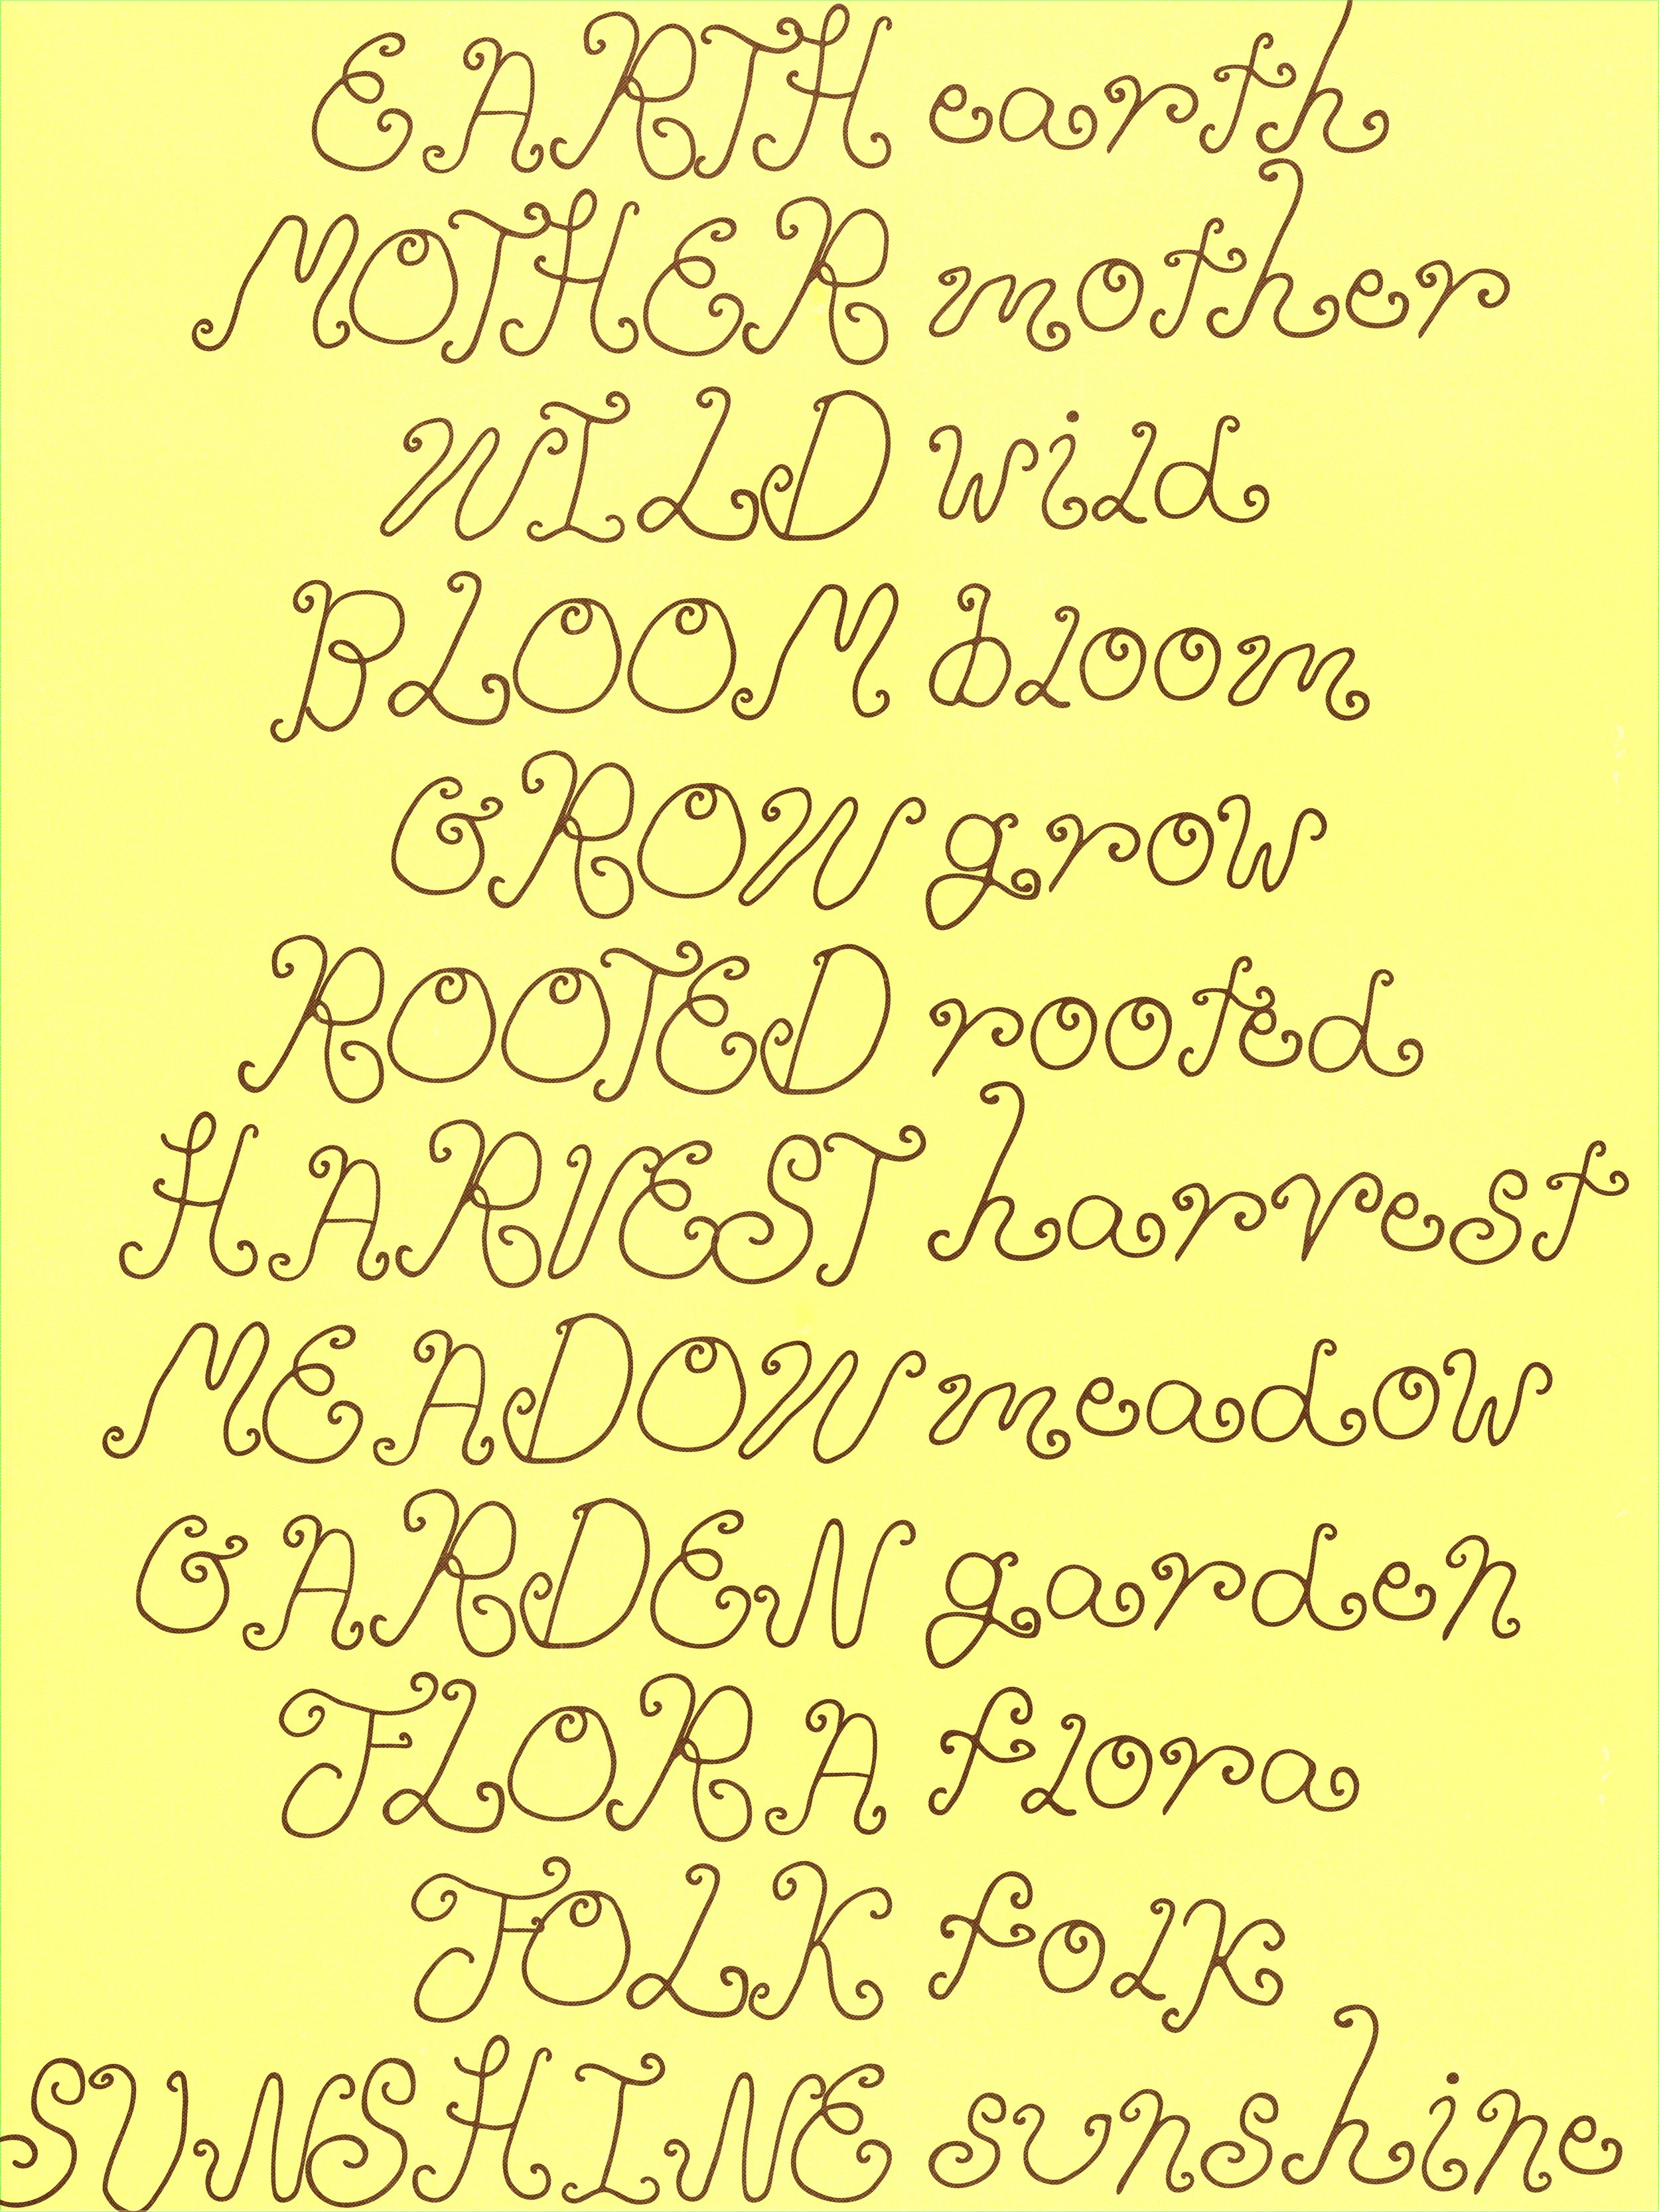 EARTH earth
MOTHER mother
WILD wild
BLOOM bloom
GROW grow
ROOTED rooted
HARVEST harvest
MEADOW meadow
GARDEN garden
FLORA flora
FOLK folk
SUNSHINE sunshine